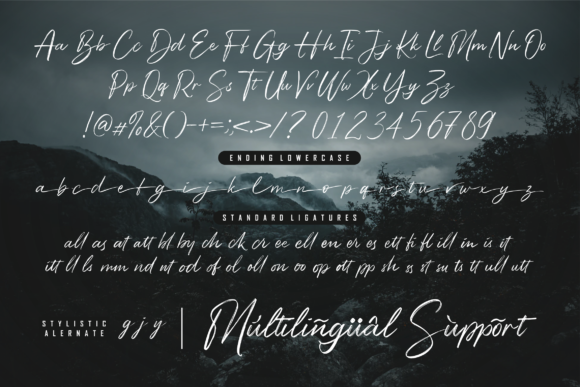 Aa Bb Cc Dd Ee Ff Gg Hh Ii Jj Kk Ll Mm Nn Oo
Pp Qq Rr Ss Tt Uu Vv Ww Xx Yy Zz
!@#%&()-+=:;<.>/? 0 1 2 3 4 5 6 7 8 9
ENDING LOWERCASE
a b c d e f g h i j k l m n o p q r s t u v w x y z
STANDARD LIGATURES
all as at att bl by ch ck cr ee ell en er es ett fi fl ill in is it
itt ll ls mm nd nt od of ol oll on oo op ott pp sh ss st su ts tt ull utt
STYLISTIC ALERNATE g j y
Múltilïñgüâl Sùppõrt